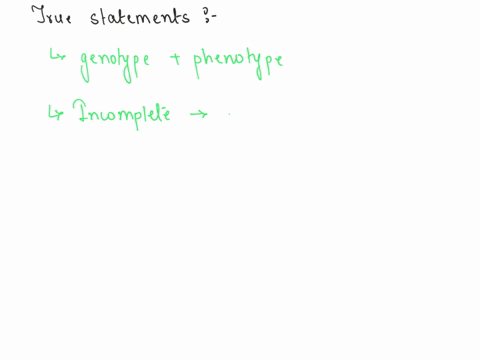 True statements :-
↳ genotype + phenotype
↳ Incomplete →